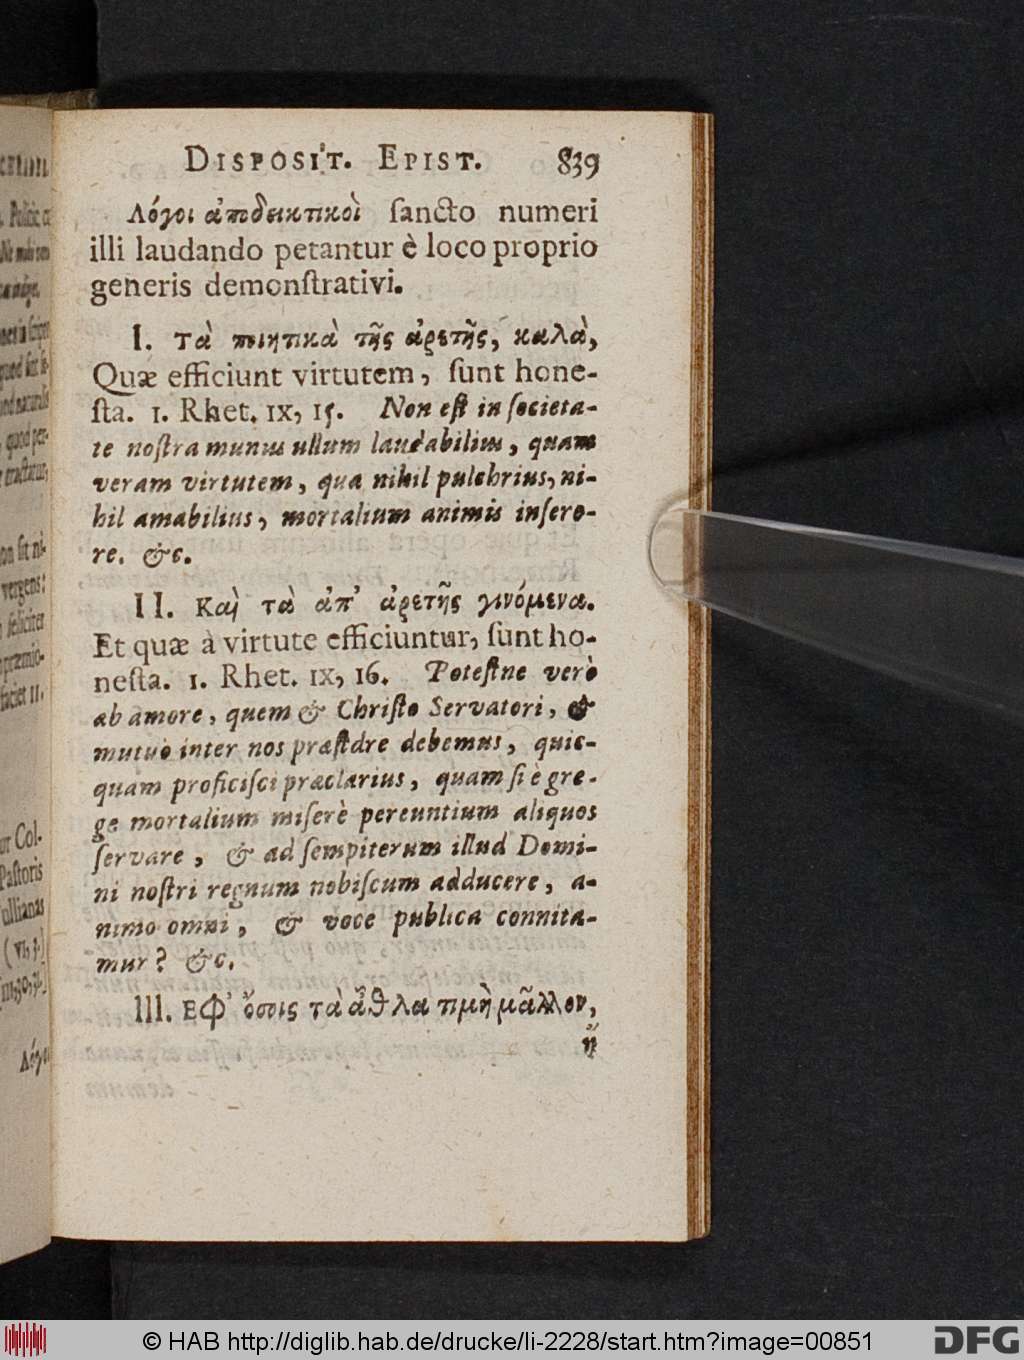 DISPOSIT. EPIST. 839
Λόγοι ἀποδεικτικοὶ ſancto numeri
illi laudando petantur è loco proprio
generis demonſtrativi.
I. τὰ ποιητικὰ τῆς ἀρετῆς, καλὰ,
Quæ efficiunt virtutem, ſunt hone-
ſta. 1. Rhet. IX, 15. Non eſt in ſocieta-
te noſtra munus ullum laudabilius, quam
veram virtutem, qua nihil pulchrius, ni-
hil amabilius, mortalium animis inſere-
re. &c.
II. Καὶ τὰ ἀπ' ἀρετῆς γινόμενα.
Et quæ à virtute efficiuntur, ſunt ho-
neſta. 1. Rhet. IX, 16. Poteſtne verò
ab amore, quem & Chriſto Servatori, &
mutuò inter nos præſtare debemus, quic-
quam proficiſci præclarius, quam ſi è gre-
ge mortalium miſerè pereuntium aliquos
ſervare, & ad ſempiterum illud Domi-
ni noſtri regnum nobiſcum adducere, a-
nimo omni, & voce publica connita-
mur? &c.
III. Εφ' ὅσοις τὰ ἆθλα τιμὴ μᾶλλον,
ἢ
© HAB http://diglib.hab.de/drucke/li-2228/start.htm?image=00851
DFG